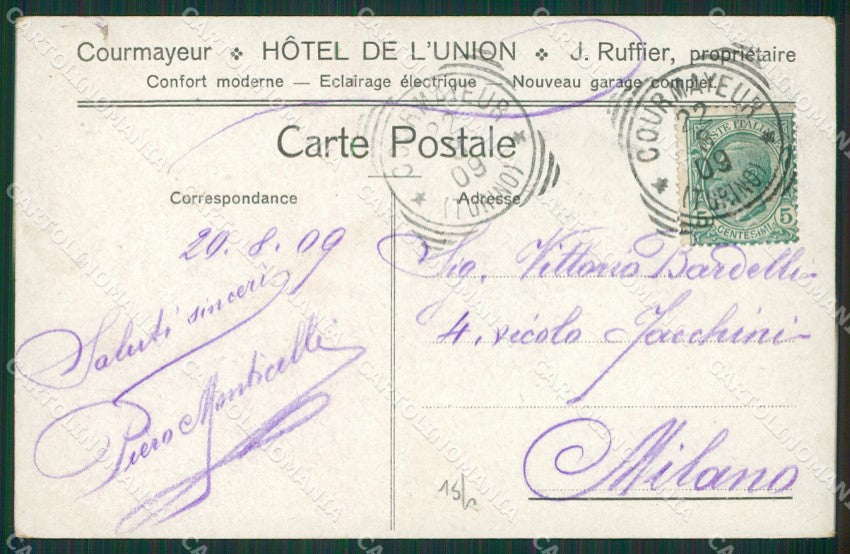 Courmayeur ❖ HÔTEL DE L'UNION ❖ J. Ruffier, propriétaire
Confort moderne — Eclairage électrique — Nouveau garage complet
Carte Postale
COURMAYEUR
09
(TORINO)
COURMAYEUR
22
8
09
(TORINO)
POSTE ITALI
5 5
CENTESIMI
Correspondance
Adresse
20. 8. 09
Saluti sinceri
Piero Monticelli
Sig. Vittorio Bardelli
4. vicolo Jacchini
Milano
15/
CARTOLINOMANIA